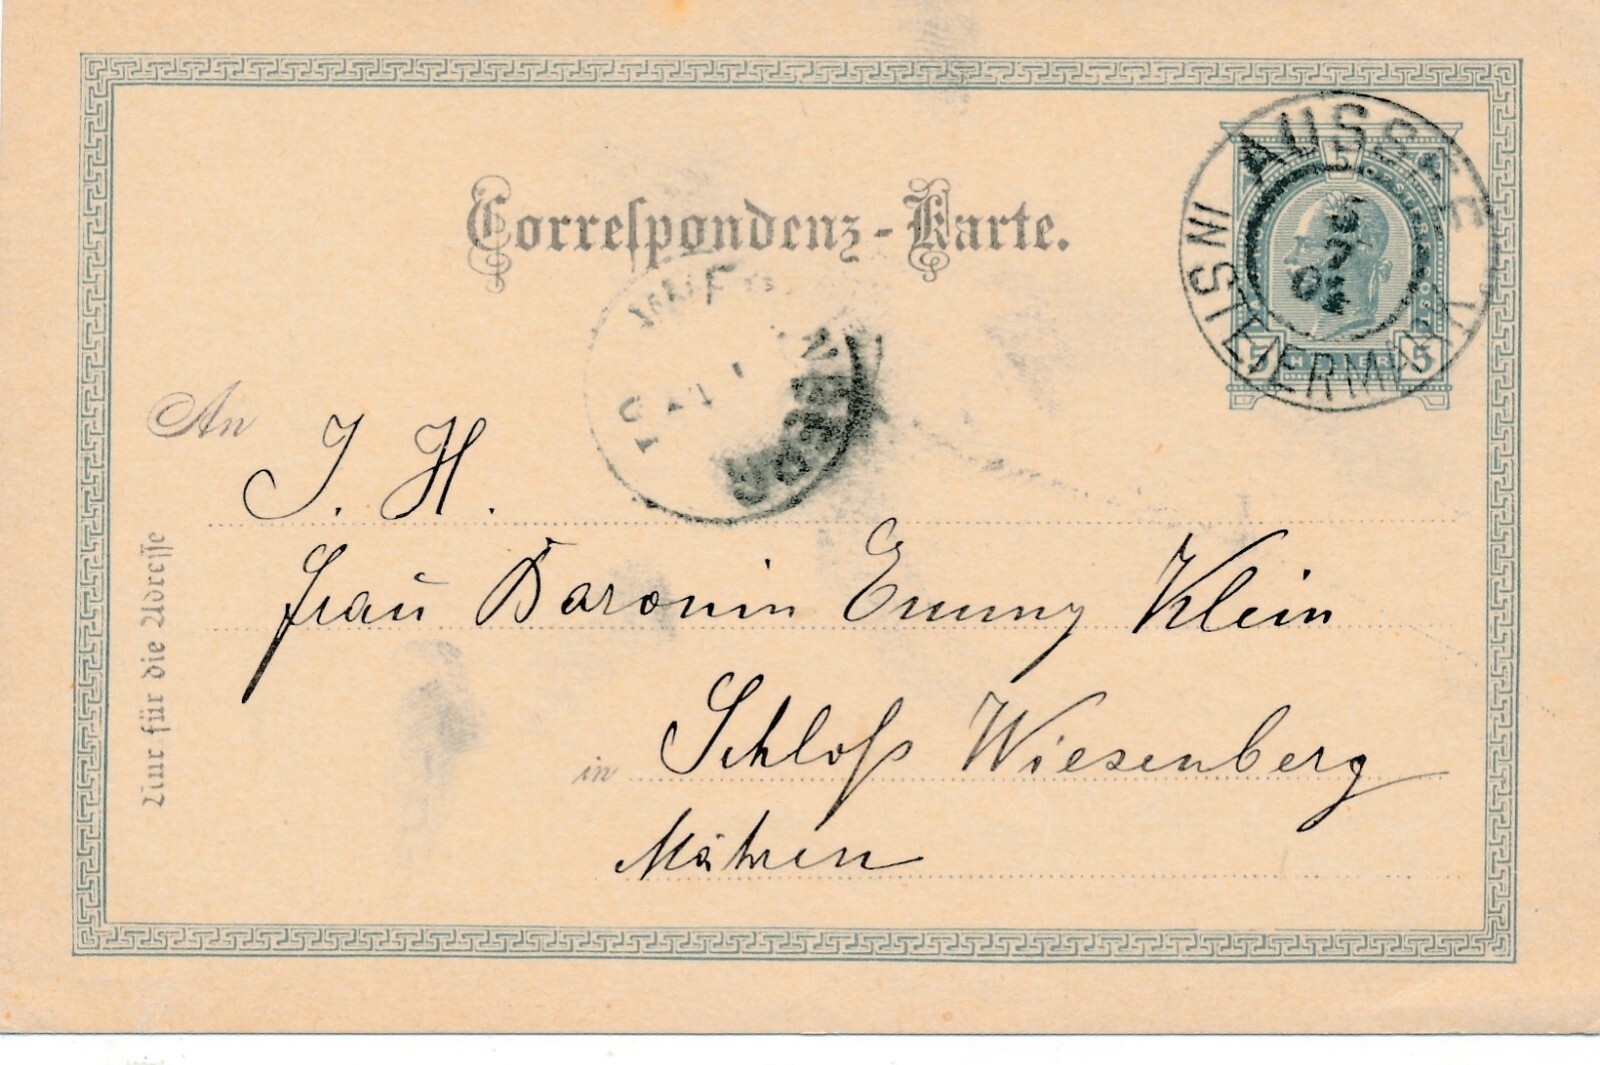 Correspondenz-Karte.
AUSSEE
IN STEIERMARK
5 HELLER 5
An
J. H.
Frau Baronin Emmy Klein
in Schloß Wiesenberg
Mähren
Nur für die Adresse